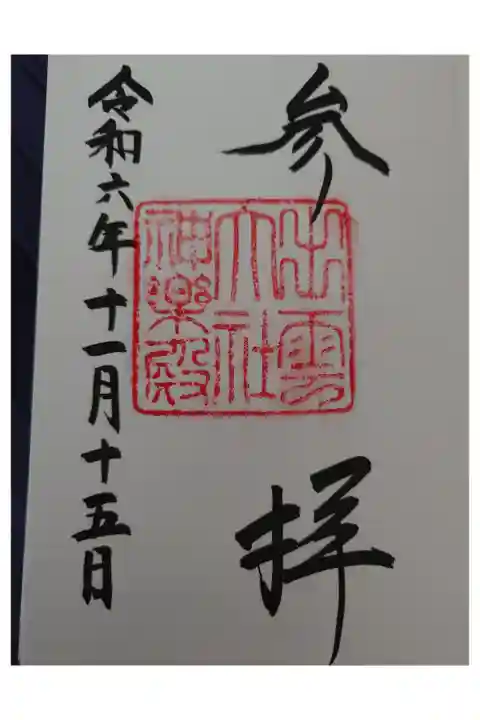 参拝
出雲
大社
神楽殿
令和六年十一月十五日